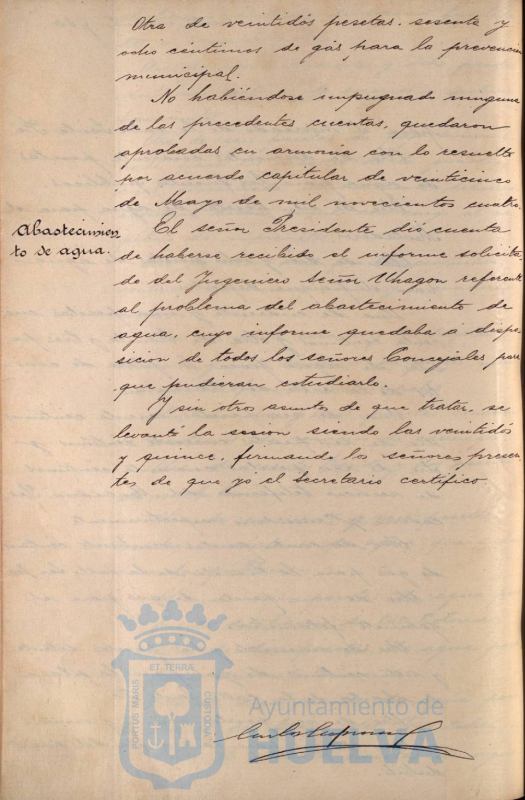 Otra de veintidós pesetas, sesenta y
ocho céntimos de gás para la prevención
municipal.
No habiéndose impugnado ninguna
de las precedentes cuentas, quedaron
aprobadas en armonía con lo resuelto
por acuerdo capitular de veinticinco
de Mayo de mil novecientos cuatro.
Abastecimien
to de agua.
El señor Presidente dió cuenta
de haberse recibido el informe solicita
do del Ingeniero Señor Uhagon referente
al problema del abastecimiento de
agua, cuyo informe quedaba á dispo
sicion de todos los señores Concejales para
que pudieran estudiarlo.
Y sin otros asuntos de que tratar, se
levantó la sesion siendo las veintidós
y quince, firmando los señores presen
tes de que yó el Secretario certifico
PORTUS MARIS
ET TERRÆ
CUSTODIA
Ayuntamiento de
HUELVA
Carlos